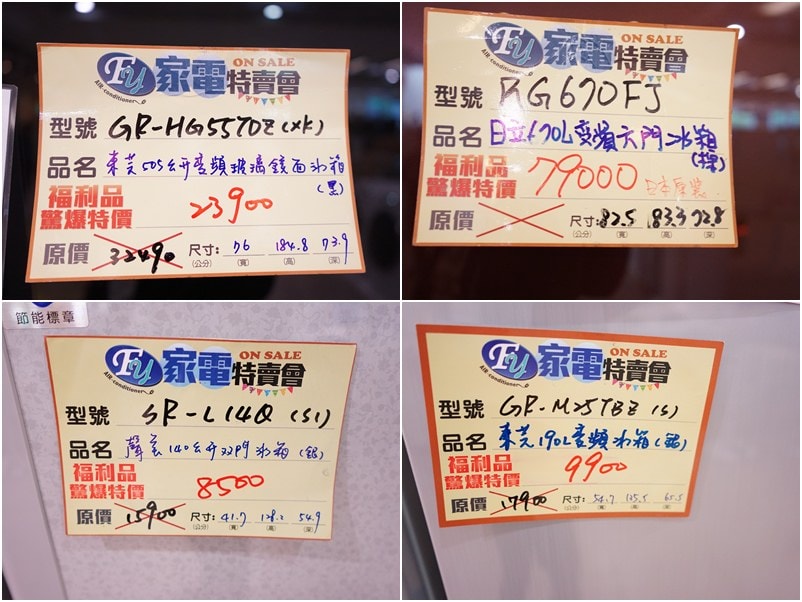 Fy 家電特賣會
ON SALE
AIR-conditioner
型號 GR-HG55TDZ(XK)
品名 東芝505公升變頻玻璃鏡面冰箱(黑)
福利品
驚爆特價 23900
原價 32490 尺寸: 76 184.8 73.9
(公分) (寬) (高) (深)
Fy 家電特賣會
ON SALE
AIR-conditioner
型號 RG670FJ
品名 日立670L變頻六門冰箱
福利品
驚爆特價 79000 日本原裝
原價 尺寸: 82.5 183.3 72.8
(公分) (寬) (高) (深)
節能標章
Fy 家電特賣會
ON SALE
AIR-conditioner
型號 SR-L14Q(S1)
品名 聲寶140公升双門冰箱(銀)
福利品
驚爆特價 8500
原價 15900 尺寸: 41.7 128.2 54.9
(公分) (寬) (高) (深)
Fy 家電特賣會
ON SALE
AIR-conditioner
型號 GR-M25TBZ(S)
品名 東芝190L變頻冰箱(銀)
福利品
驚爆特價 9900
原價 17900 尺寸: 54.7 125.5 65.5
(公分) (寬) (高) (深)